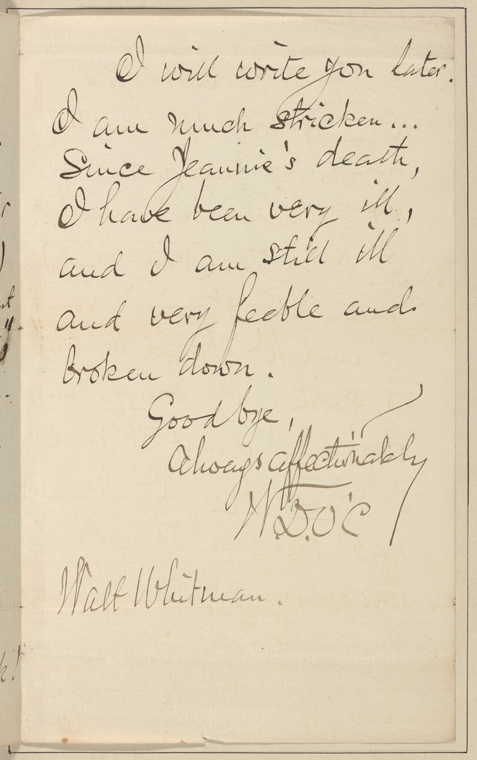 I will write you later.
I am much stricken...
Since Jeannie's death,
I have been very ill,
and I am still ill
and very feeble and
broken down.
Good bye,
Always affectionately
W.D.O'C
Walt Whitman.